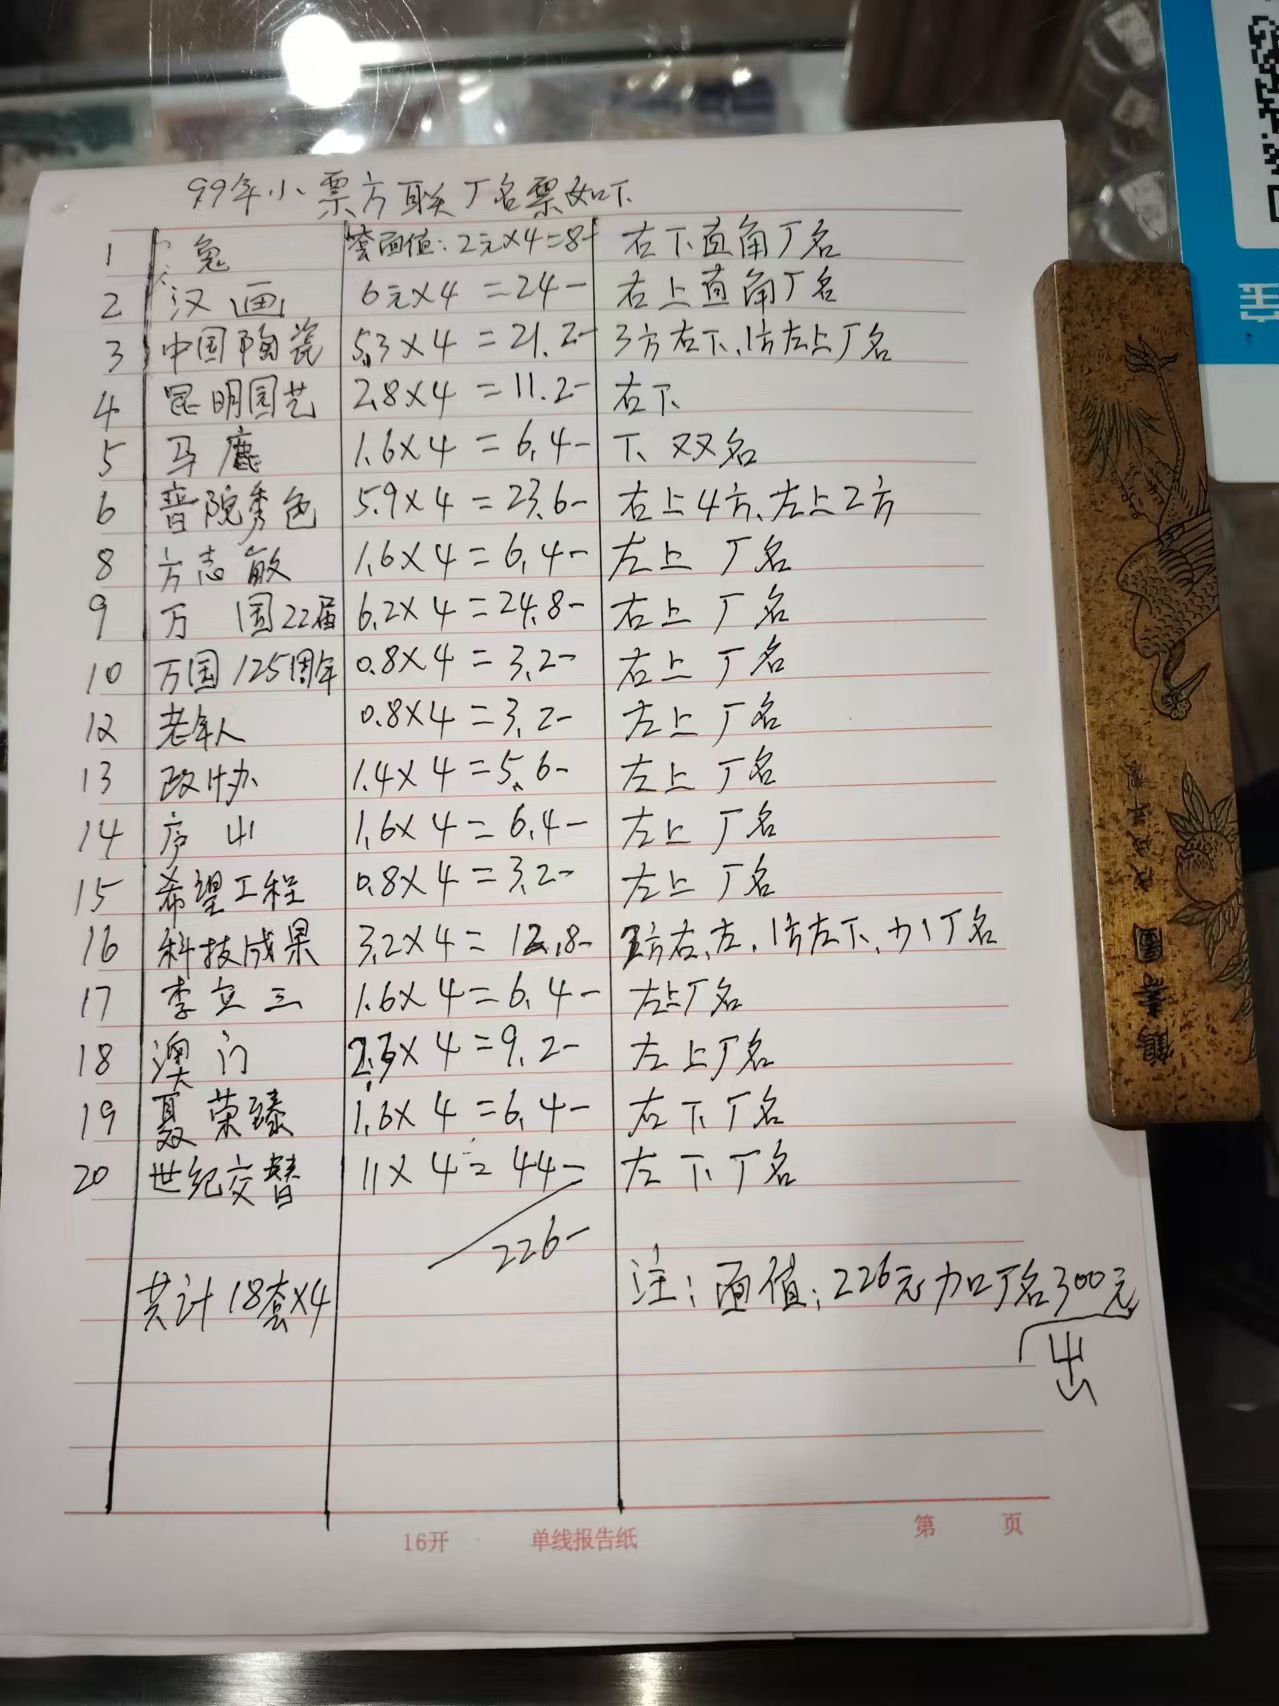 99年小票方联厂名票如下
1 兔 套面值:2元×4=8- 右下直角厂名
2 汉画 6元×4=24- 右上直角厂名
3 中国陶瓷 5.3×4=21.2- 3方右下、1方左上厂名
4 昆明园艺 2.8×4=11.2- 右下
5 马鹿 1.6×4=6.4- 下双名
6 普陀秀色 5.9×4=23.6- 右上4方、左上2方
8 方志敏 1.6×4=6.4- 左上厂名
9 万国22届 6.2×4=24.8- 右上厂名
10 万国125周年 0.8×4=3.2- 右上厂名
12 老年人 0.8×4=3.2- 左上厂名
13 政协 1.4×4=5.6- 左上厂名
14 庐山 1.6×4=6.4- 左上厂名
15 希望工程 0.8×4=3.2- 左上厂名
16 科技成果 3.2×4=12.8- 2方右、左、1方左下、少1厂名
17 李立三 1.6×4=6.4- 左上厂名
18 澳门 2.3×4=9.2- 左上厂名
19 聂荣臻 1.6×4=6.4- 右下厂名
20 世纪交替 11×4=44- 左下厂名
226-
共计18套×4 注:面值:226元加厂名300元
出
16开 单线报告纸 第 页
鹤寿图